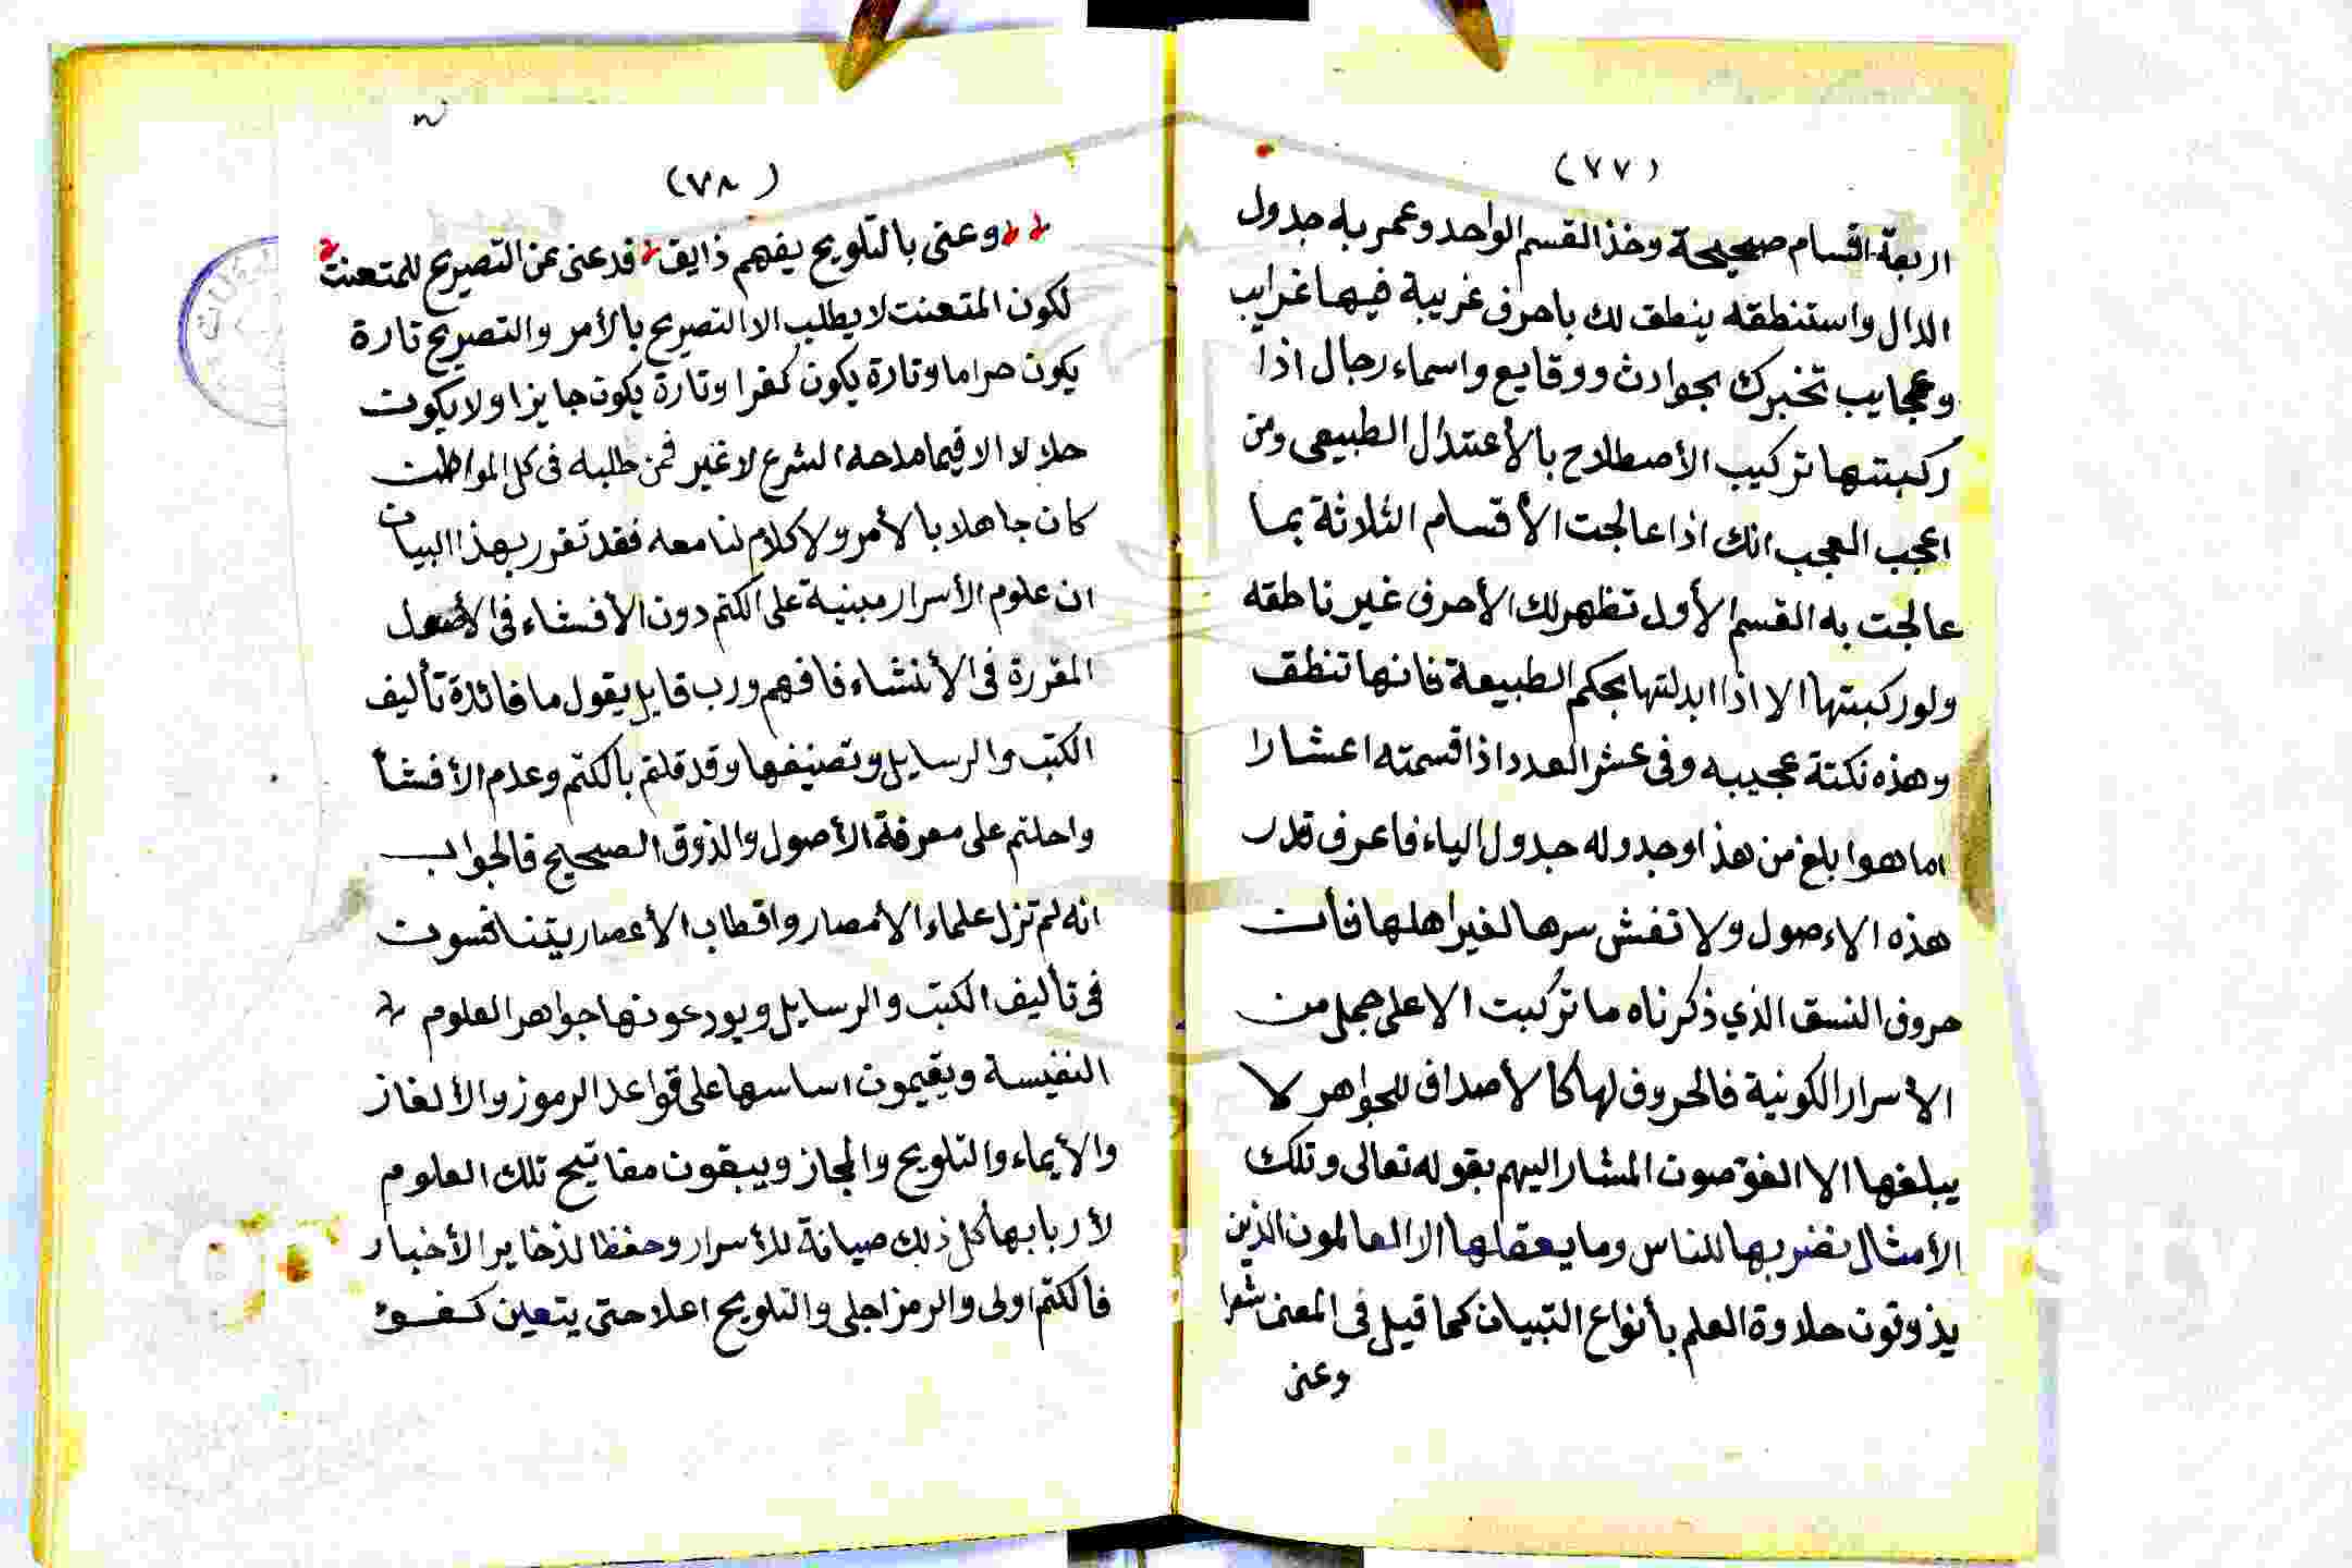 (٧٧)
اربعة اقسام صحيحة وخذ القسم الواحد وعمر به جدول
الدال واستنطقه ينطق لك باحرف غريبة فيها غرايب
وعجايب تخبرك بحوادث ووقايع واسماء رجال اذا
ركبتها تركيب الأصطلاح بالأعتدال الطبيعى ومن
اعجب العجب انك اذا عالجت الأقسام الثلاثة بما
عالجت به القسم الأول تظهر لك الأحرف غير ناطقه
ولو ركبتها الا اذا ابدلتها بحكم الطبيعة فانها تنطق
وهذه نكتة عجيبه وفى عشر العدد اذا قسمته اعشارا
اما هوا بلغ من هذا وجدوله جدول الياء فاعرف قدر
هذه الاءصول ولا تفش سرها لغير اهلها فأن
حروف النسق الذي ذكرناه ما تركبت الا على جمل من
الأسرار الكونية فالحروف لها كالأصداف للجواهر لا
يبلغها الا الغوّصون المشار اليهم بقوله تعالى وتلك
الأمثال نضربها للناس وما يعقلها الا العالمون الذين
يذوقون حلاوة العلم بأنواع التبيان كما قيل فى المعنى شعرا
وعنى
(٧٨)
وعنى بالتلويح يفهم ذايق قد عنى عن التصريح للمتعنت
لكون المتعنت لا يطلب الا التصريح بالأمر والتصريح تارة
يكون حراما وتارة يكون كفرا وتارة يكون جايزا ولا يكون
حلالا الا فيما الشرع لا غير فمن طلبه فى كل المواطن
كان جاهلا بالأمر ولا كلام لنا معه فقد تقرر بهذا البيان
ان علوم الأسرار مبنية على الكتم دون الأفشاء فى الأصول
المقررة فى الأنشاء فافهم ورب قايل يقول ما فائدة تأليف
الكتب والرسايل وتصنيفها وقد قلتم بالكتم وعدم الأفشأ
واحلتم على معرفة الأصول والذوق الصحيح فالجواب
انه لم تزل علماء الأمصار واقطاب الأعصار يتنافسون
فى تأليف الكتب والرسايل ويودعونها جواهر العلوم
النفيسة ويقيمون اساسها على قواعد الرموز والألغاز
والأيماء والتلويح والمجاز ويبقون مفاتيح تلك العلوم
لأربابها كل ذلك صيانة للأسرار وحفظا لذخاير الأخبار
فالكتم اولى والرمز اجلى والتلويح اعلا حتى يتعين كفوء